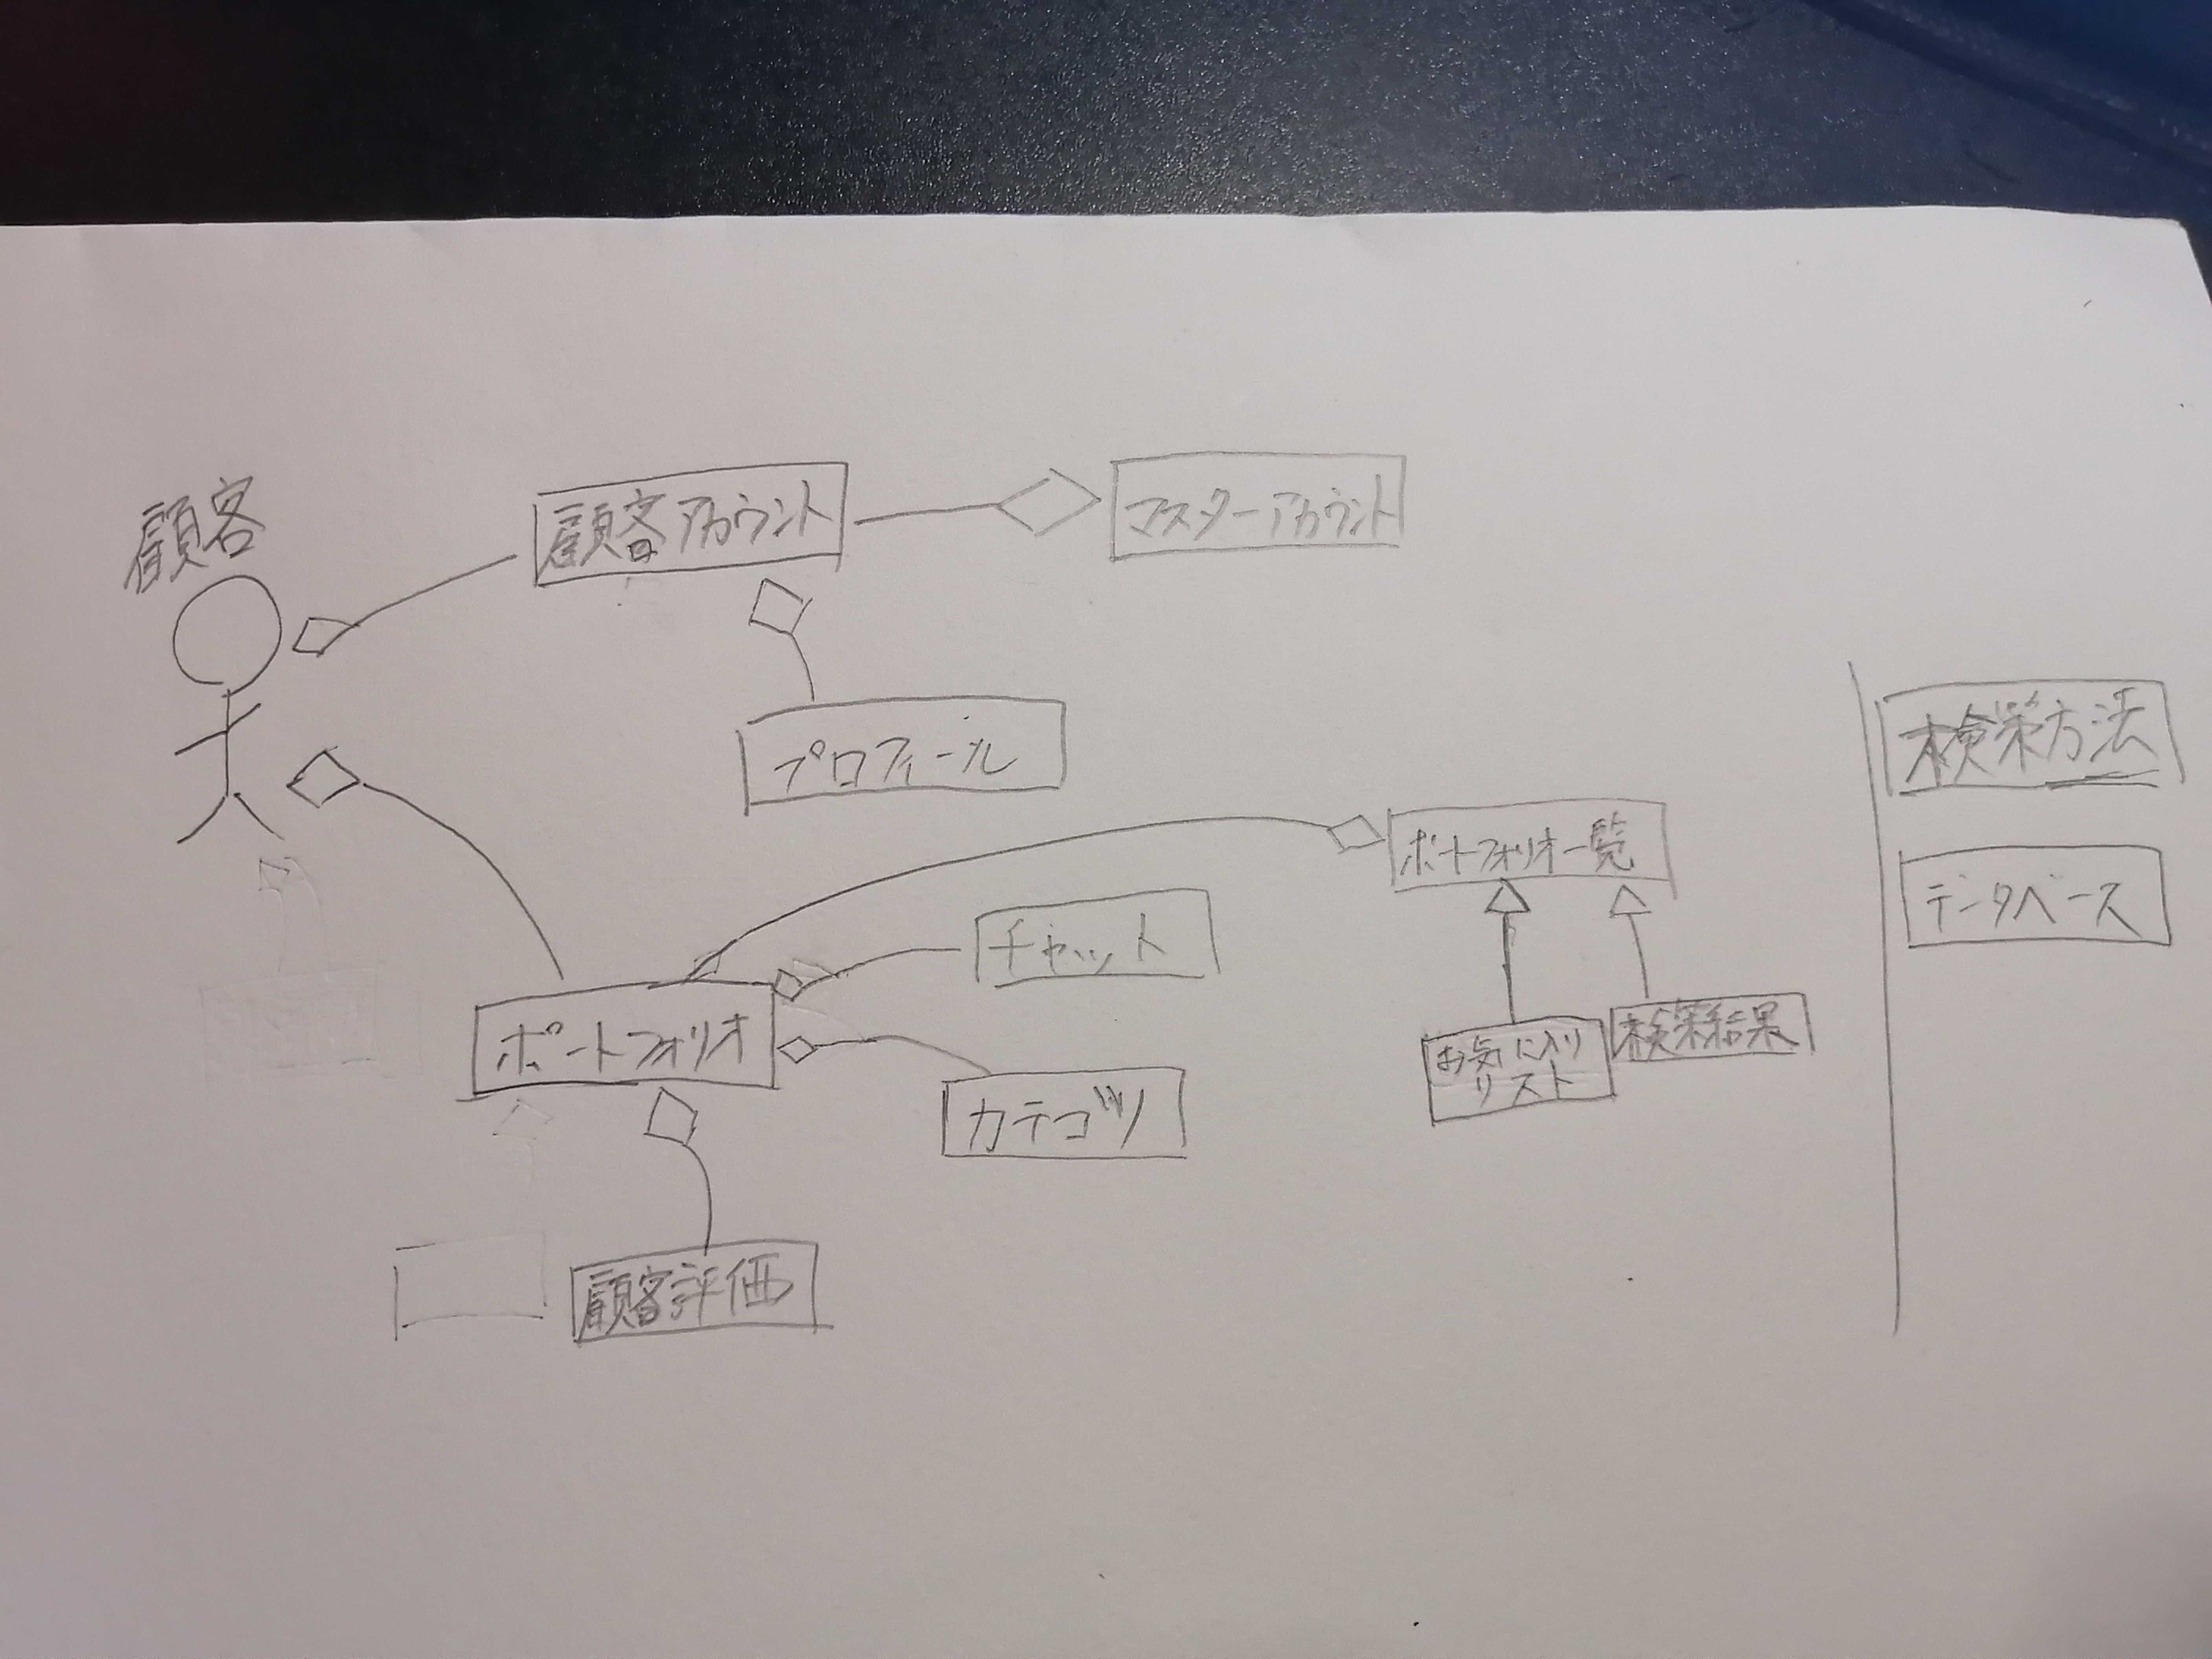 顧客
顧客アカウント
マスターアカウント
プロフィール
ポートフォリオ一覧
チャット
ポートフォリオ
カテゴリ
お気に入り
リスト
検索結果
顧客評価
検索方法
データベース